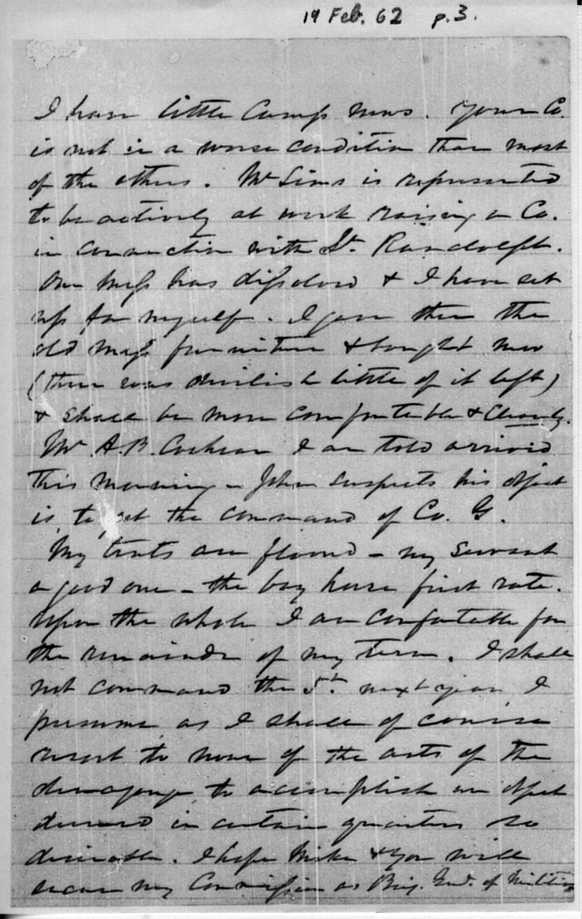 19 Feb. 62 p. 3.
I have little Camp news. Your Co.
is not in a worse condition than most
of the others. Mr Sims is represented
to be actively at work raising a Co.
in connection with Lt. Randolph.
Our mess has dissolved & I have set
up for myself. I gave them the
old mess furniture & bought new
(there was devilish little of it left)
& shall be more comfortable & cleanly.
Mr A. B. Cochran I am told arrived
this morning - John suspects his object
is to get the command of Co. G.
My tents are floored - my servant
a good one - the bay horse first rate.
Upon the whole I am comfortable for
the remainder of my term. I shall
not command the 5th next year I
presume as I shall of course
resort to none of the arts of the
demagogue to accomplish an object
deemed in certain quarters so
desirable. I hope Mike & you will
secure my Commission as Brig. Genl. of Militia